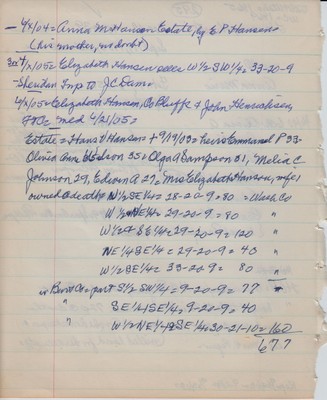 — 4/x/04 = Anna M Hanson Estate, by E. P. Hanson
(his mother, no doubt)
3rd 4/x/05 = Elizabeth Hansen W½ SW¼ = 33-20-9
- Sheridan Twp to J C Dam.
4/x/05 = Elizabeth Hansen, & John Henricksen,
med 4/21/05 =
Estate = Hans V Hansen + 9/19/03 = heirs Emmanuel P 33-
Olivia Ann 35, Olga A Sampson 31, Melia C
Johnson 29, Edwin A 27 = Mrs Elizabeth Hansen, wife;
owned @ death N½ SE¼ = 28-20-9 = 80 = Wash Co
W½ NE¼ = 29-20-9 = 80 "
W½ & SE¼ = 29-20-9 = 120 "
NE¼ SE¼ = 29-20-9 = 40 "
W½ SE¼ = 33-20-9 = 80 "
in Burt Co = part S½ SW¼ = 9-20-9 = 77
" SE¼ SE¼ = 9-20-9 = 40
" W½ NE¼ + SE¼ = 30-21-10 = 160
677